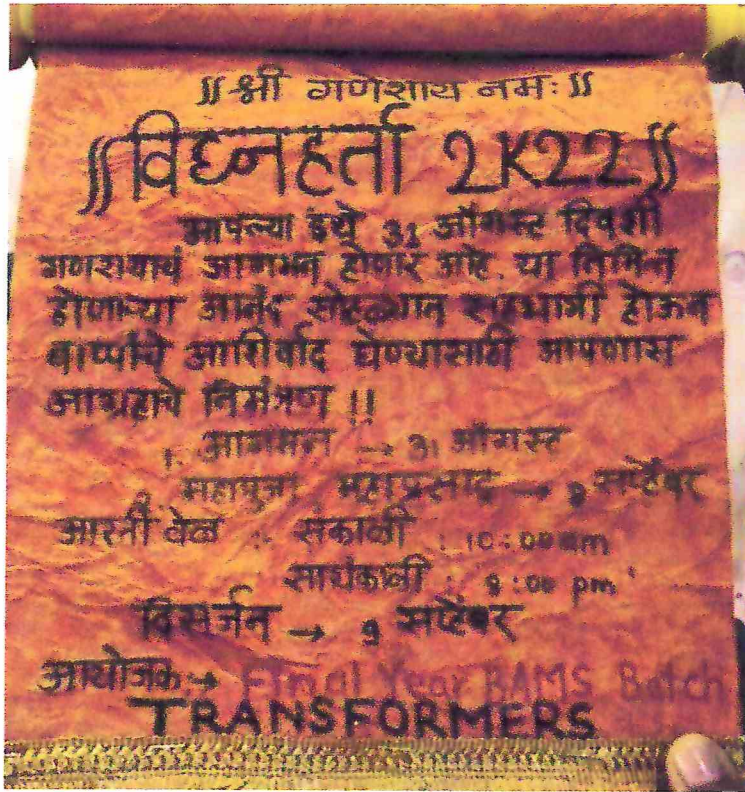 ॥ श्री गणेशाय नमः ॥
॥ विघ्नहर्ता 2K22 ॥
आपल्या इथे 31 ऑगस्ट दिवशी
गणरायाचं आगमन होणार आहे. या निमित्त
होणाऱ्या आनंद सोहळ्यात सहभागी होऊन
बाप्पांचे आशिर्वाद घेण्यासाठी आपणास
आग्रहाचे निमंत्रण ।।
1. आगमन → 31 ऑगस्ट
2. महापुजा महाप्रसाद → 8 सप्टेंबर
आरती वेळ :- सकाळी : 10:00 am
सायंकाळी : 8:00 pm
विसर्जन → 9 सप्टेंबर
आयोजक → Final Year BAMS Batch
TRANSFORMERS